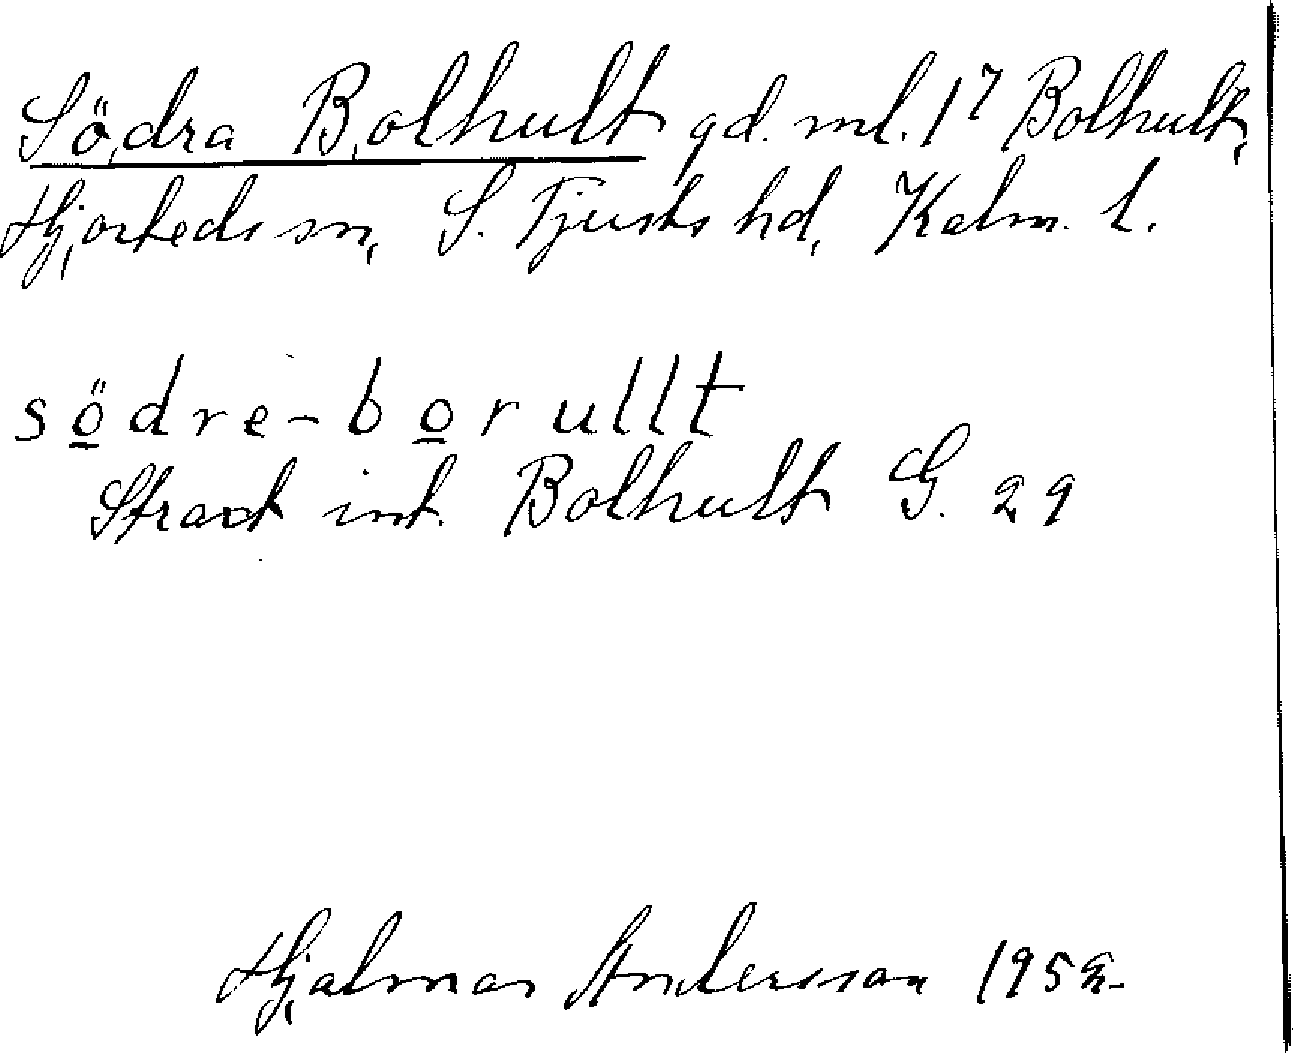 Södra Bolhult gd. ml. 1⁷ Bolhult,
Hjorteds sn, S. Tjusts hd, Kalm. l.
södre-borullt
Straxt int. Bolhult G. 29
Hjalmar Andersson 1952.